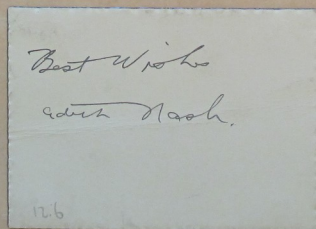 Best Wishes
Edith Nash.
12.6